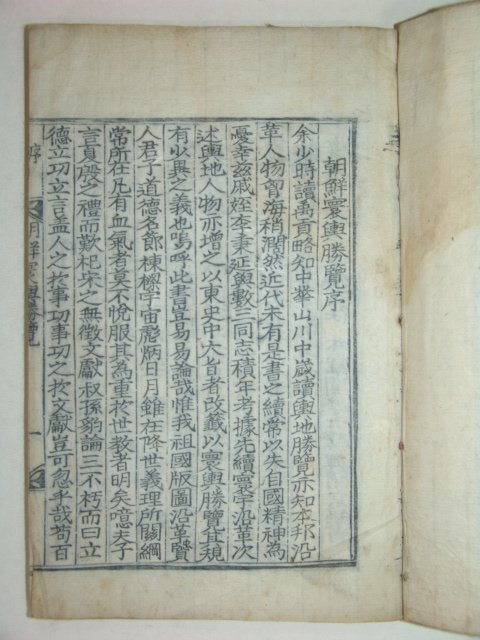 朝鮮寰輿勝覽序
余少時讀禹貢略知中華山川中歲讀輿地勝覽亦知本邦沿
革人物智海稍濶然近代未有是書之續常以失自國精神爲
憂幸玆戚姪李秉延與數三同志積年考據先續寰宇沿革次
述輿地人物亦增之以東史中大旨者改籤以寰輿勝覽其規
有少異之義也嗚呼此書豈易易論哉惟我祖國版圖沿革賢
人君子道德名郞棟樑宇宙彪炳日月雖在降世義理所關綱
常所在凡有血氣者莫不悅服其爲重於世敎者明矣噫夫子
言夏殷之禮而歎杞宋之無徵文獻叔孫豹論三不朽而曰立
德立功立言盖人之於事功事功之於文獻豈可忽乎哉苟百
序 朝鮮寰輿勝覽 一